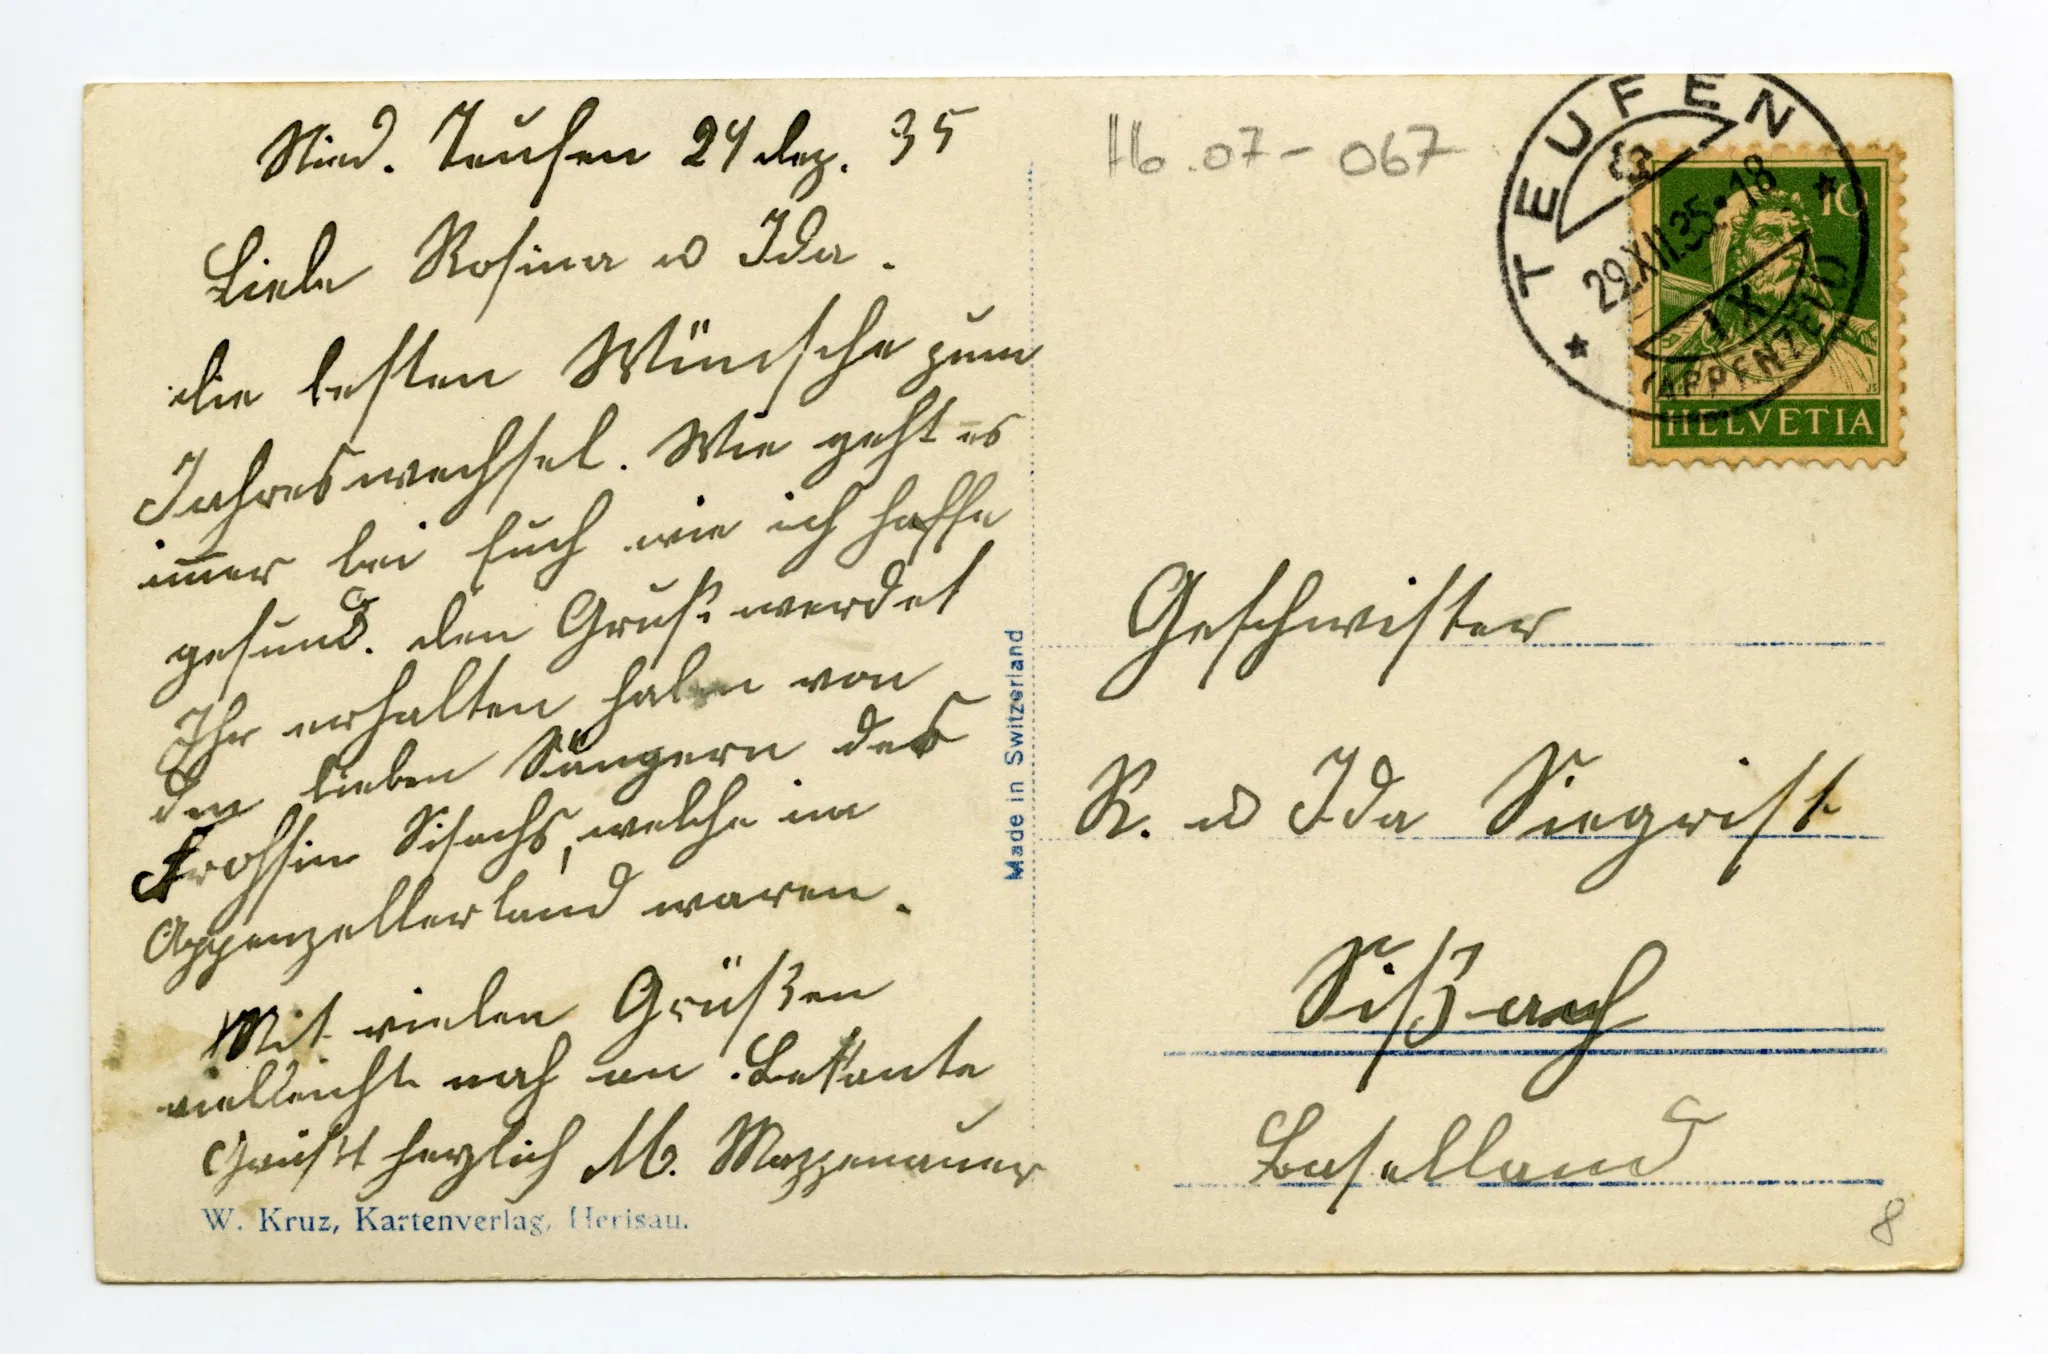 Nied. Teufen 24 dez. 35
Liebe Rosina u Ida.
die besten Wünsche zum
Jahreswechsel. Wie geht es
immer bei Euch wie ich hoffe
gesund. den Gruß werdet
Ihr erhalten haben von
den lieben Sängern des
Frohsinn Sissachs, welche im
Appenzellerland waren.
Mit vielen Grüßen
vielleicht noch an Bekante
Grüsst herzlich M.
W. Kruz, Kartenverlag, Herisau.
Made in Switzerland
Hb.07-067
TEUFEN
29.XII.35.-18
IX
(APPENZELL)
10
HELVETIA
Geschwister
R. u Ida Siegrist
Sißach
Baselland
8